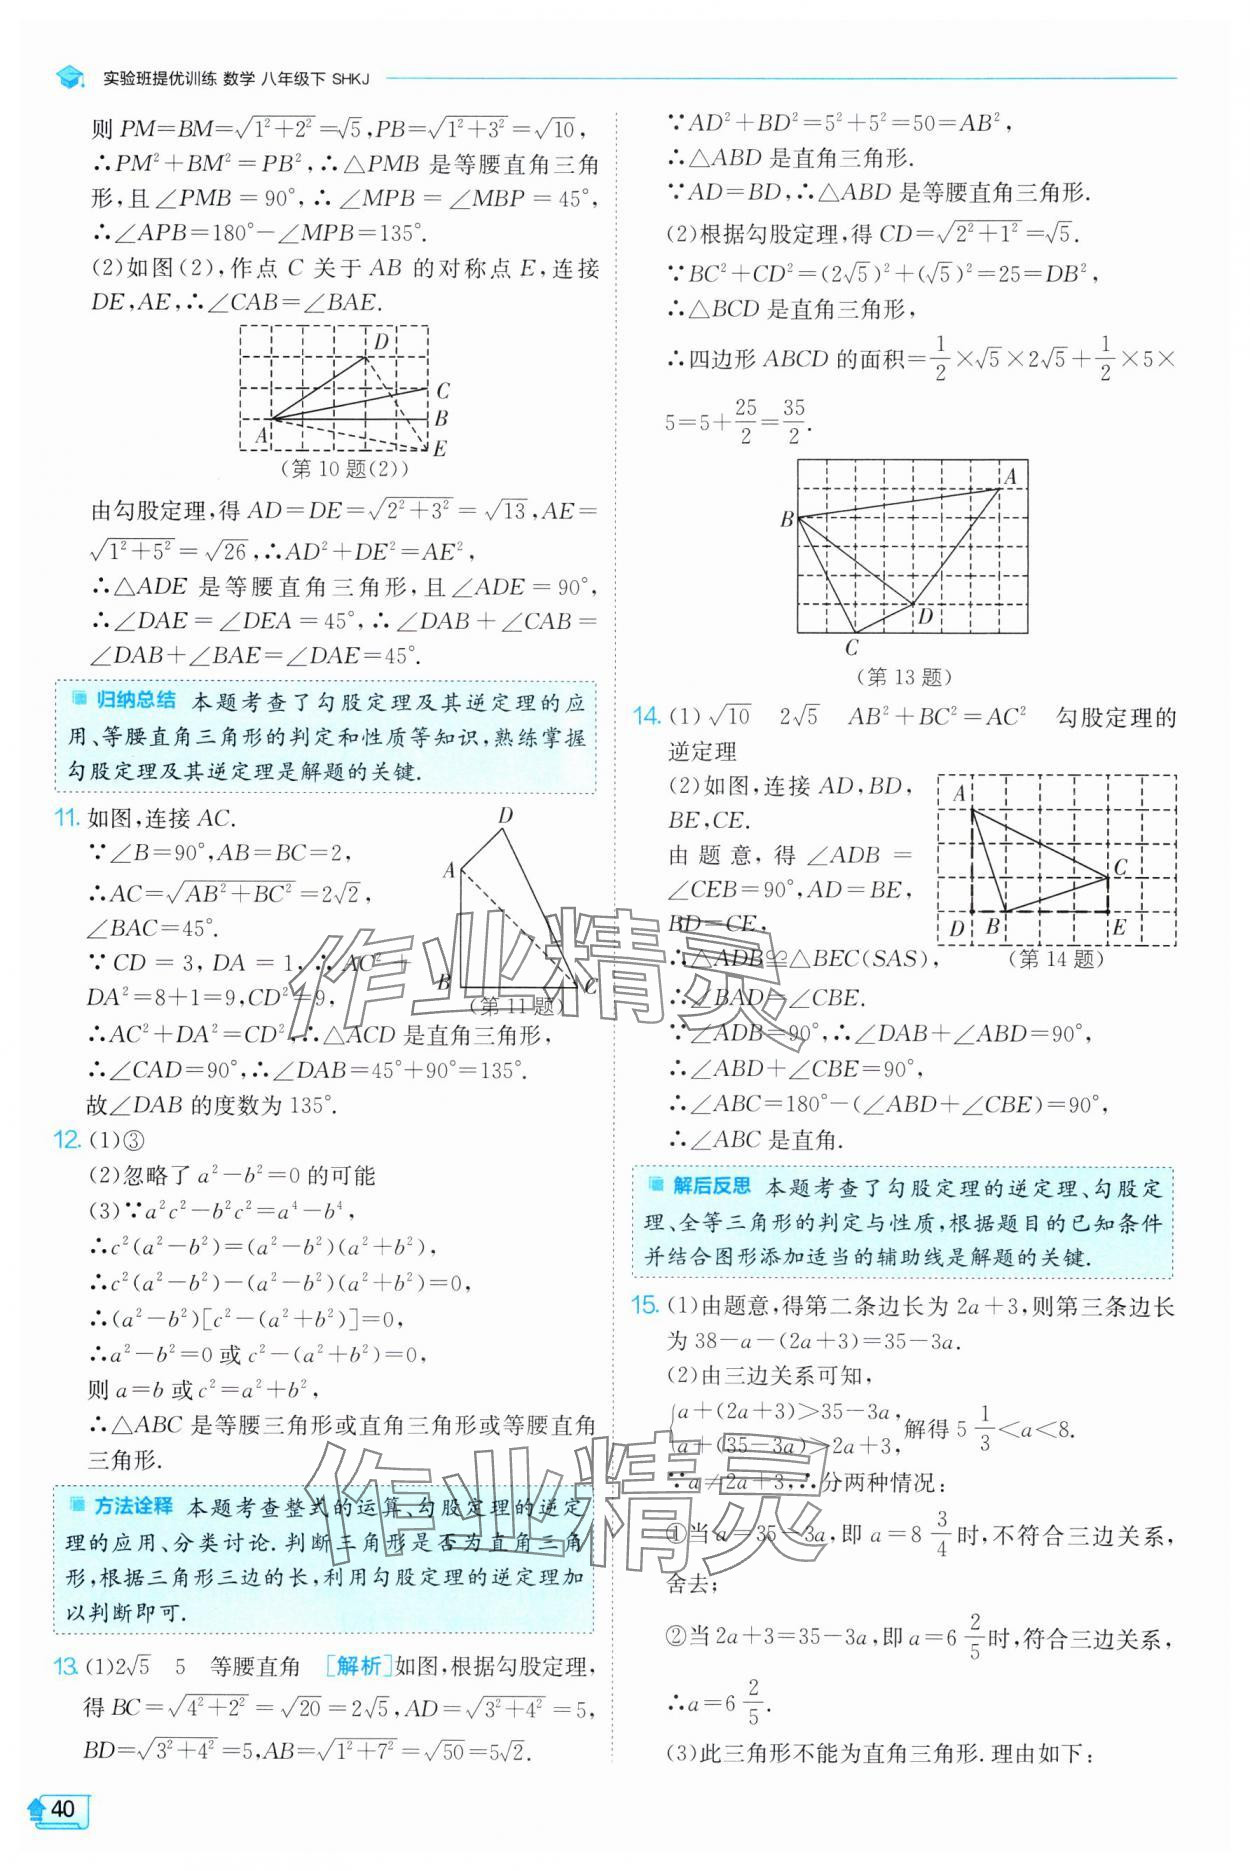 实验班提优训练 数学 八年级下 SHKJ
则 PM=BM=√(1²+2²)=√5,PB=√(1²+3²)=√10,
∴PM²+BM²=PB²,∴△PMB 是等腰直角三角
形,且∠PMB=90°,∴∠MPB=∠MBP=45°,
∴∠APB=180°-∠MPB=135°.
(2)如图(2),作点 C 关于 AB 的对称点 E,连接
DE,AE,∴∠CAB=∠BAE.
D
C
B
A
E
(第 10 题(2))
由勾股定理,得 AD=DE=√(2²+3²)=√13,AE=
√(1²+5²)=√26,∴AD²+DE²=AE²,
∴△ADE 是等腰直角三角形,且∠ADE=90°,
∴∠DAE=∠DEA=45°,∴∠DAB+∠CAB=
∠DAB+∠BAE=∠DAE=45°.
归纳总结 本题考查了勾股定理及其逆定理的应
用、等腰直角三角形的判定和性质等知识,熟练掌握
勾股定理及其逆定理是解题的关键.
11. 如图,连接 AC.
∵∠B=90°,AB=BC=2,
∴AC=√(AB²+BC²)=2√2,
∠BAC=45°.
∵CD=3,DA=1,∴AC²+
DA²=8+1=9,CD²=9,
D
A
B
C
(第 11 题)
∴AC²+DA²=CD²,∴△ACD 是直角三角形,
∴∠CAD=90°,∴∠DAB=45°+90°=135°.
故∠DAB 的度数为 135°.
12. (1)③
(2)忽略了 a²-b²=0 的可能
(3)∵a²c²-b²c²=a⁴-b⁴,
∴c²(a²-b²)=(a²-b²)(a²+b²),
∴c²(a²-b²)-(a²-b²)(a²+b²)=0,
∴(a²-b²)[c²-(a²+b²)]=0,
∴a²-b²=0 或 c²-(a²+b²)=0,
则 a=b 或 c²=a²+b²,
∴△ABC 是等腰三角形或直角三角形或等腰直角
三角形.
方法诠释 本题考查整式的运算、勾股定理的逆定
理的应用、分类讨论.判断三角形是否为直角三角
形,根据三角形三边的长,利用勾股定理的逆定理加
以判断即可.
13. (1)2√5 5 等腰直角 [解析]如图,根据勾股定理,
得 BC=√(4²+2²)=√20=2√5,AD=√(3²+4²)=5,
BD=√(3²+4²)=5,AB=√(1²+7²)=√50=5√2.
40
∵AD²+BD²=5²+5²=50=AB²,
∴△ABD 是直角三角形.
∵AD=BD,∴△ABD 是等腰直角三角形.
(2)根据勾股定理,得 CD=√(2²+1²)=√5.
∵BC²+CD²=(2√5)²+(√5)²=25=DB²,
∴△BCD 是直角三角形,
∴四边形 ABCD 的面积=1/2×√5×2√5+1/2×5×
5=5+25/2=35/2.
A
B
D
C
(第 13 题)
14. (1)√10 2√5 AB²+BC²=AC² 勾股定理的
逆定理
(2)如图,连接 AD,BD,
BE,CE.
由题意,得∠ADB=
∠CEB=90°,AD=BE,
BD=CE,
∴△ADB≌△BEC(SAS),
A
C
D B E
(第 14 题)
∴∠BAD=∠CBE.
∵∠ADB=90°,∴∠DAB+∠ABD=90°,
∴∠ABD+∠CBE=90°,
∴∠ABC=180°-(∠ABD+∠CBE)=90°,
∴∠ABC 是直角.
解后反思 本题考查了勾股定理的逆定理、勾股定
理、全等三角形的判定与性质,根据题目的已知条件
并结合图形添加适当的辅助线是解题的关键.
15. (1)由题意,得第二条边长为 2a+3,则第三条边长
为 38-a-(2a+3)=35-3a.
(2)由三边关系可知,
{a+(2a+3)>35-3a,
a+(35-3a)>2a+3, 解得 5 1/3<a<8.
∵a≠2a+3,∴分两种情况:
①当 a=35-3a,即 a=8 3/4 时,不符合三边关系,
舍去;
②当 2a+3=35-3a,即 a=6 2/5 时,符合三边关系,
∴a=6 2/5.
(3)此三角形不能为直角三角形.理由如下:
作业精灵
作业精灵